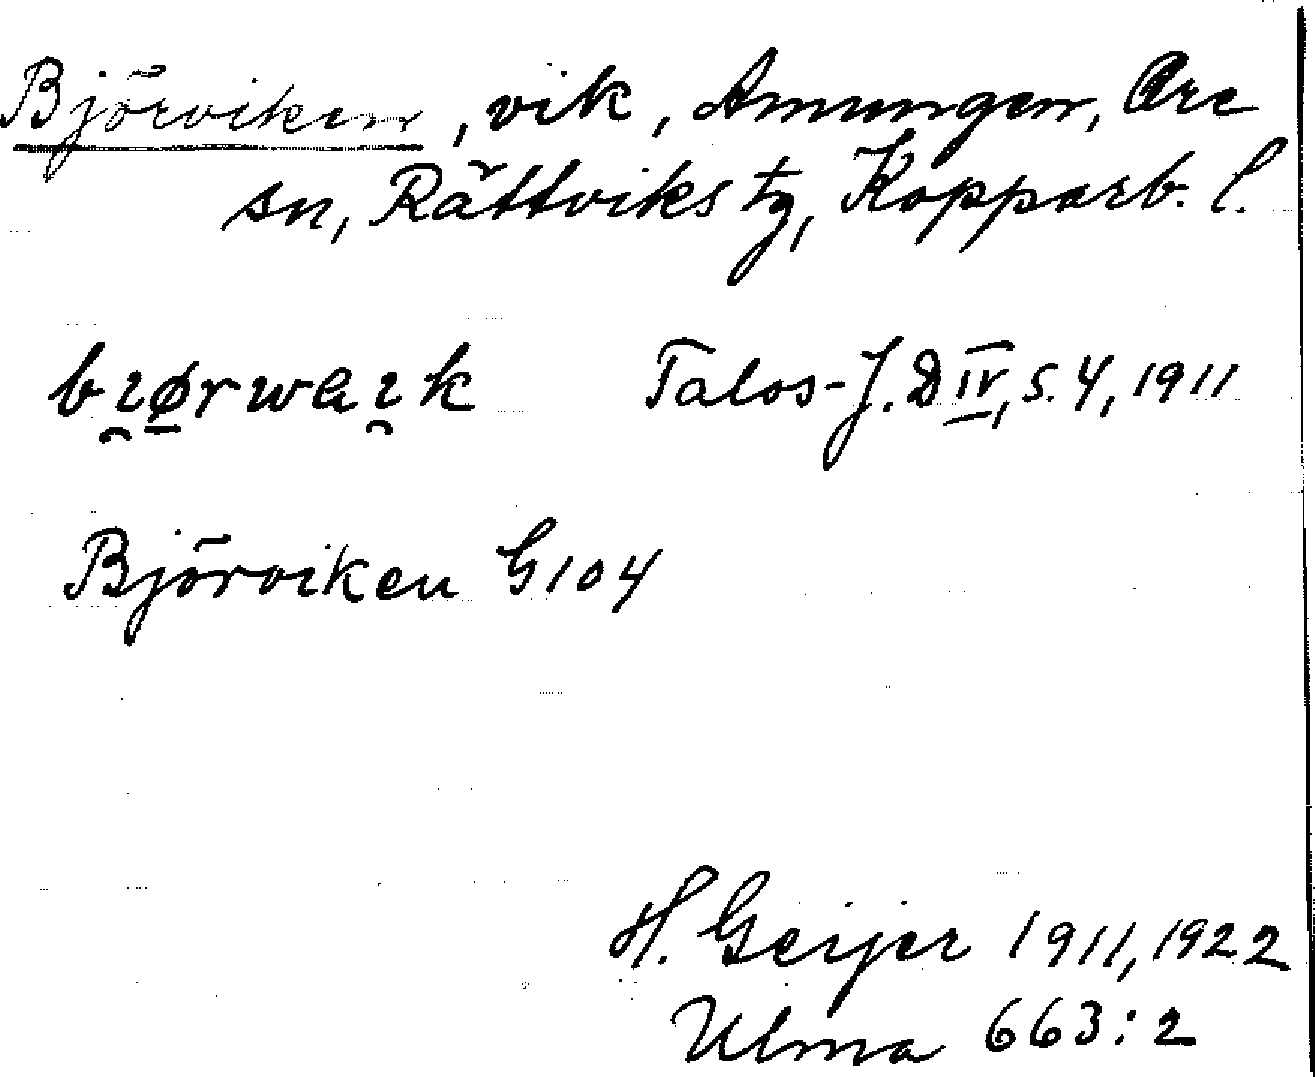 Björviken, vik, Amungen, Ore
sn, Rättviks tg, Kopparb. l.
bı̯ø̠rwaı̯k Talos-J. D IV, s. 4, 1911
Björviken G104
H. Geijer 1911, 1922
Ulma 663:2